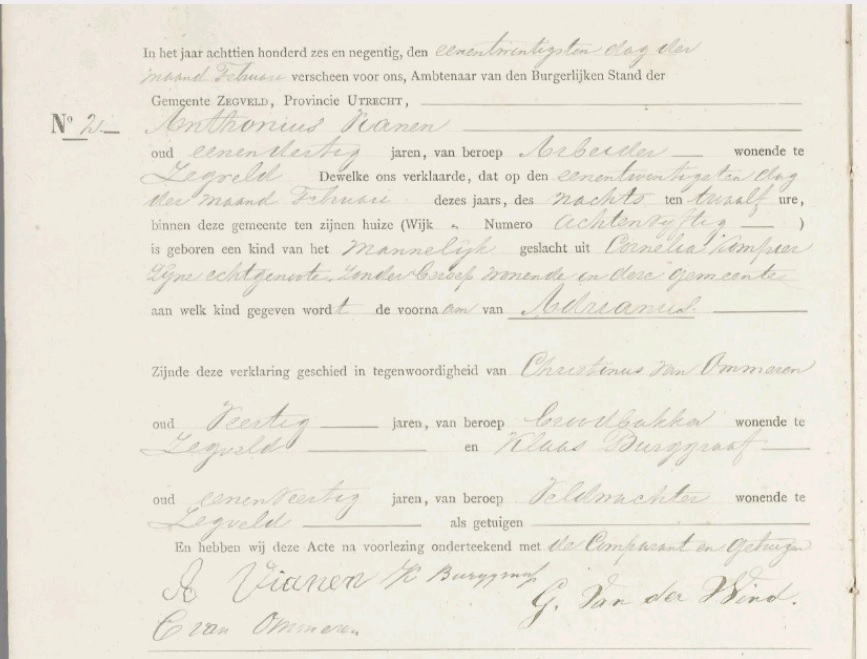 In het jaar achttien honderd zes en negentig, den eenentwintigsten dag der
maand Februari verscheen voor ons, Ambtenaar van den Burgerlijken Stand der
Gemeente ZEGVELD, Provincie UTRECHT,
No 2. Anthonius Vianen
oud eenendertig jaren, van beroep Arbeider wonende te
Zegveld Dewelke ons verklaarde, dat op den eenentwintigsten dag
der maand Februari dezes jaars, des nachts ten twaalf ure,
binnen deze gemeente ten zijnen huize (Wijk „ Numero achtenvyftig )
is geboren een kind van het Mannelijk geslacht uit Cornelia Kompeer
Zijne echtgenoote, zonder beroep wonende in deze gemeente
aan welk kind gegeven wordt de voornaam van Adrianus.
Zijnde deze verklaring geschied in tegenwoordigheid van Christinus van Ommeren
oud Veertig jaren, van beroep broodbakker wonende te
Zegveld en Klaas Burggraaf
oud eenenveertig jaren, van beroep Veldwachter wonende te
Zegveld als getuigen
En hebben wij deze Acte na voorlezing onderteekend met de Comparant en getuigen
A Vianen K Burggraaf
G. Van der Wind.
C van Ommeren